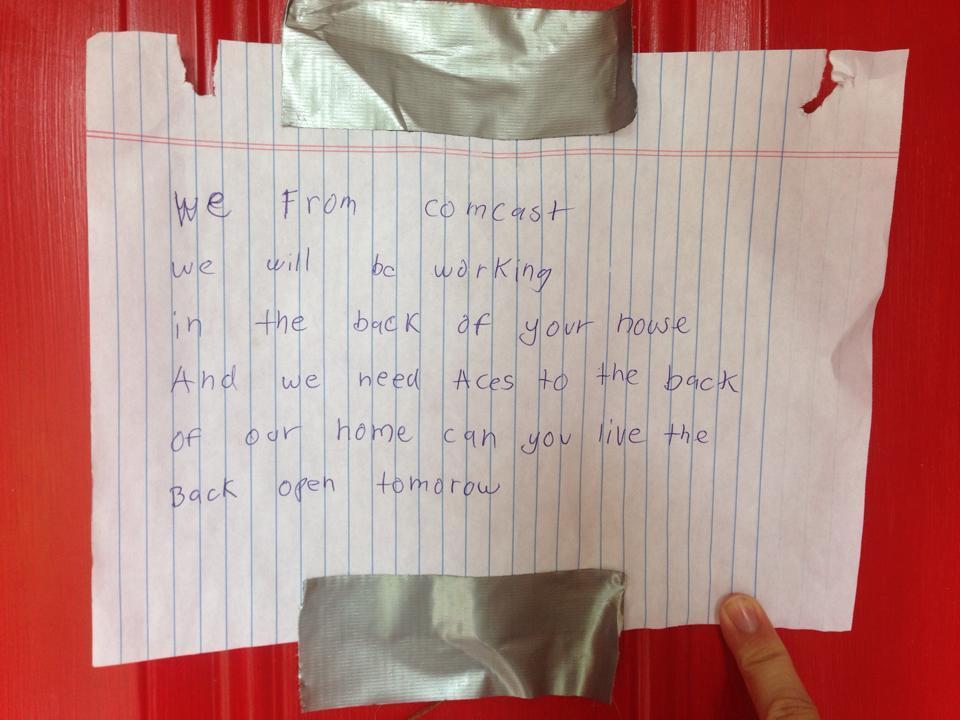 We From comcast
we will be working
in the back of your house
And we need Aces to the back
of our home can you live the
Back open tomorow